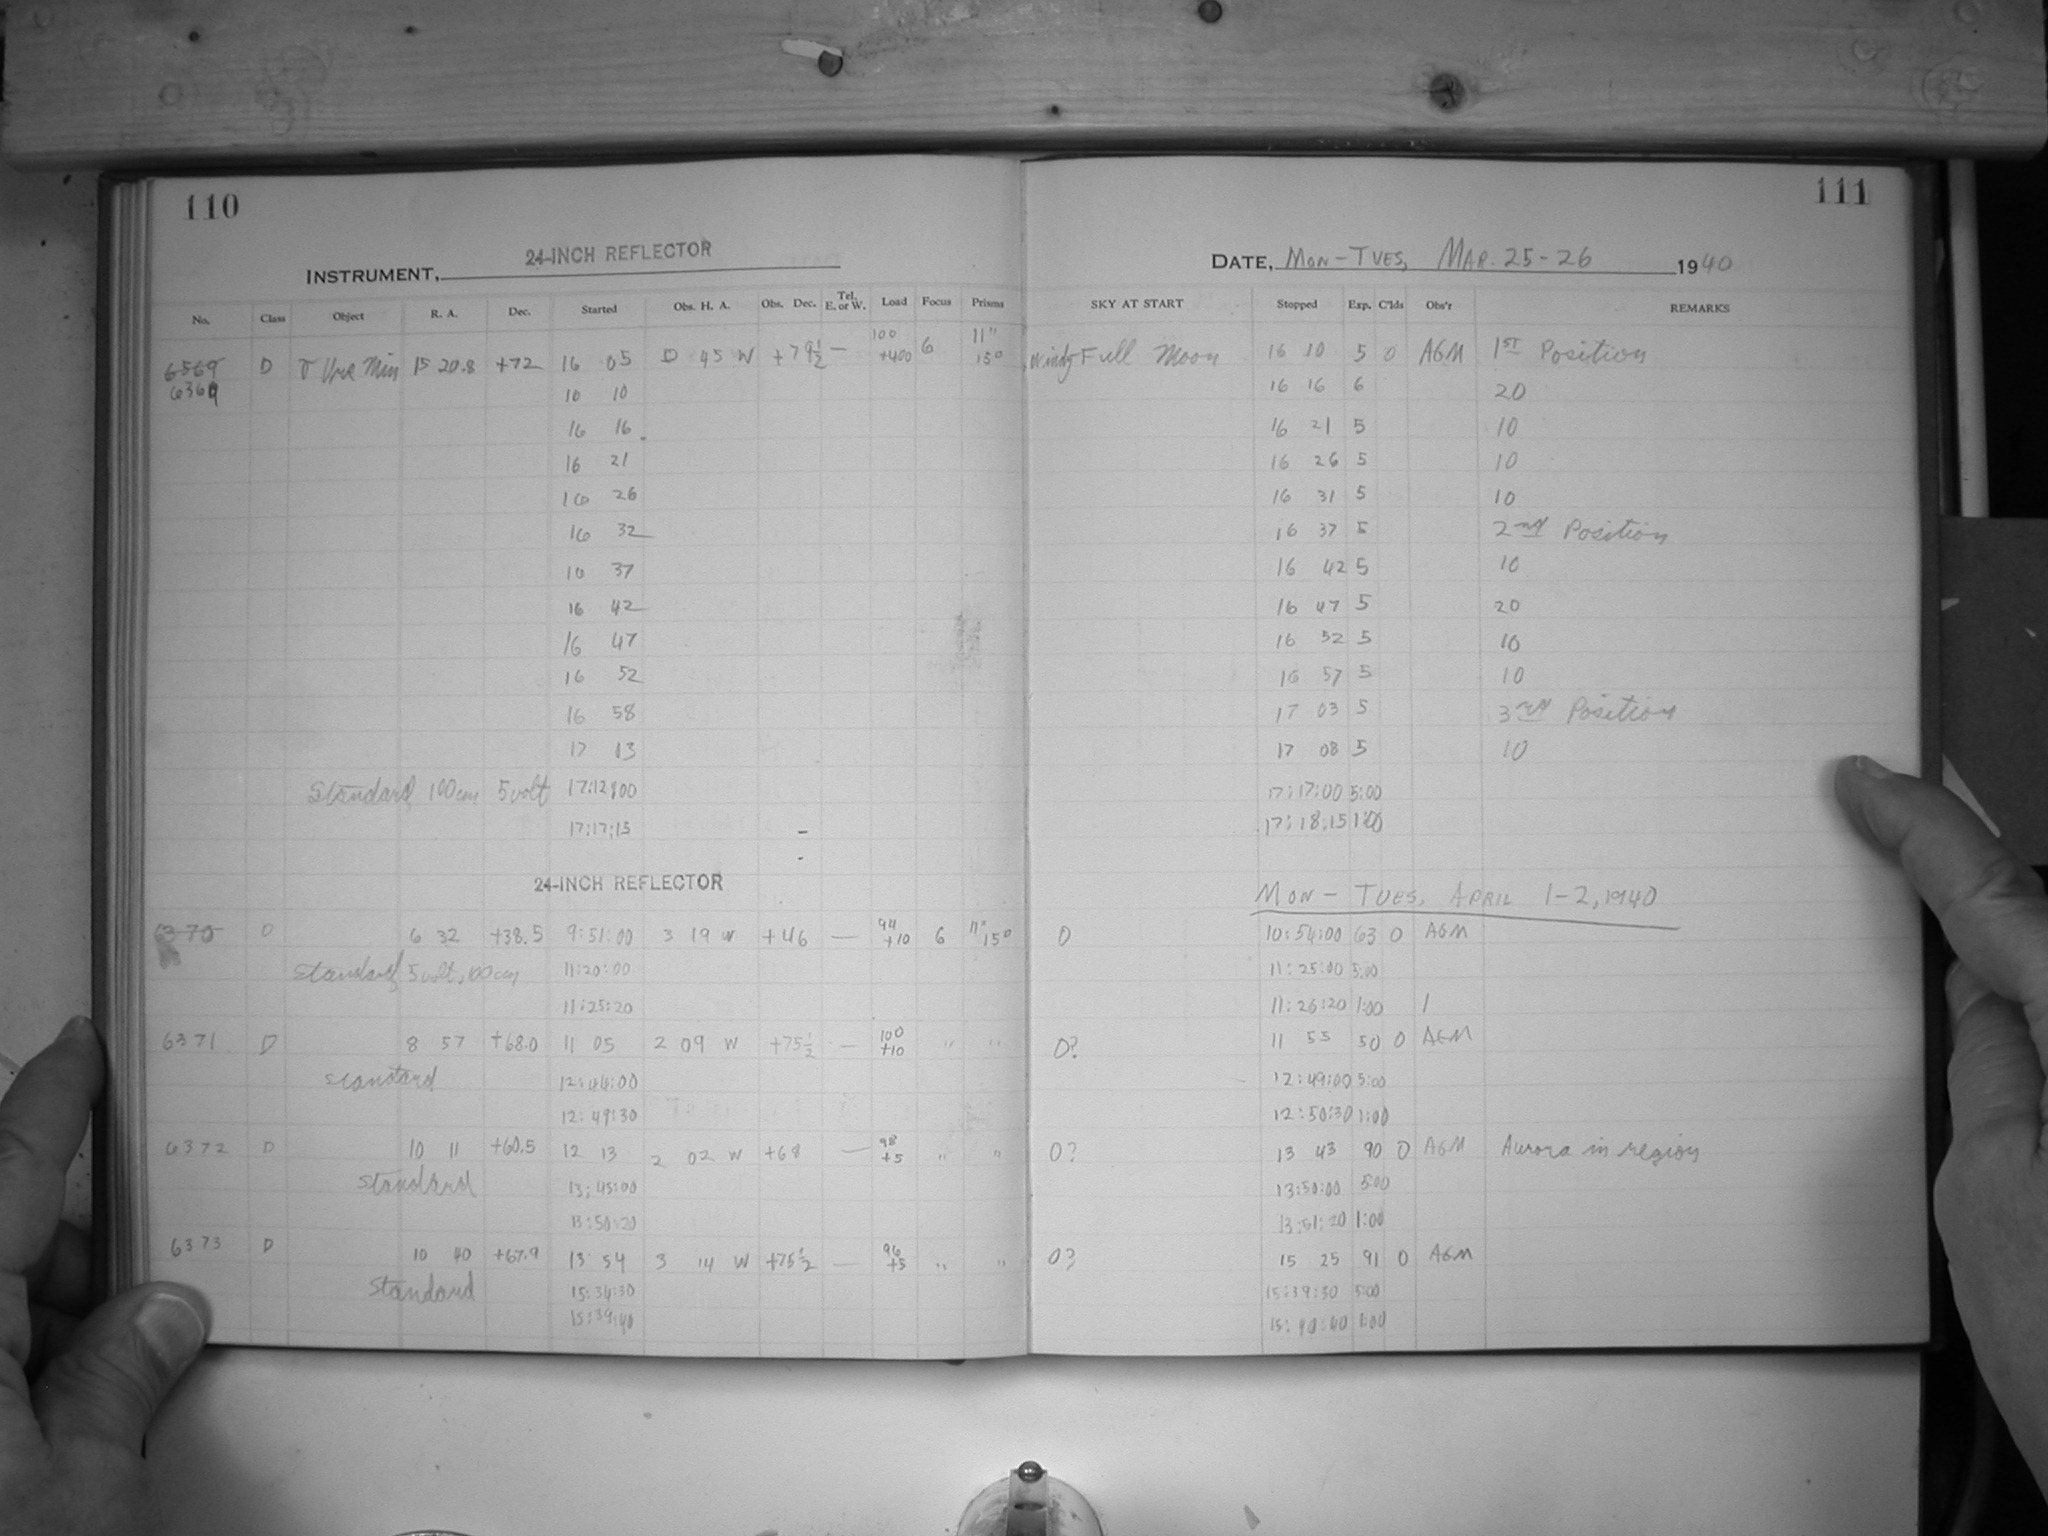 110
111
24-INCH REFLECTOR
INSTRUMENT,
DATE, MON-TUES, MAR. 25-26 1940
No. Class Object R. A. Dec. Started Obs. H. A. Obs. Dec. Tel. E. or W. Load Focus Prisms SKY AT START Stopped Exp. C'lds Obs'r REMARKS
6569 D Urs Min 15 20.8 +72 16 05 0 45 W +79½ — 100 +400 6 11" 15° windy Full Moon 16 10 5 0 AGM 1ST Position
6369 10 10 16 16 6 20
16 16 16 21 5 10
16 21 16 26 5 10
16 26 16 31 5 10
16 32 16 37 5 2nd Position
16 37 16 42 5 10
16 42 16 47 5 20
16 47 16 52 5 10
16 52 16 57 5 10
16 58 17 03 5 3rd Position
17 03 17 08 5 10
Standard 100cm 5volt 17:12:00 17:17:00 5:00
17:17:15 17:18:15 1:00
24-INCH REFLECTOR MON-TUES, APRIL 1-2, 1940
6370 D 6 32 +38.5 9:51:00 3 19 W +46 — 94 +10 6 11" 15° 0 10:54:00 63 0 AGM
Standard 5volt, 100cm 11:20:00 11:25:00 5:00
11:25:20 11:26:20 1:00 1
6371 D 8 57 +68.0 11 05 2 09 W +75½ — 100 +10 " " 0? 11 55 50 0 AGM
Standard 12:44:00 12:49:00 5:00
12:49:30 12:50:30 1:00
6372 D 10 11 +60.5 12 13 2 02 W +68 — 98 +5 " " 0? 13 43 90 0 AGM Aurora in region
Standard 13:45:00 13:50:00 5:00
13:50:20 13:51:20 1:00
6373 D 10 40 +67.9 13 54 3 14 W +75½ — 96 +5 " " 0? 15 25 91 0 AGM
Standard 15:34:30 15:39:30 5:00
15:39:40 15:40:40 1:00